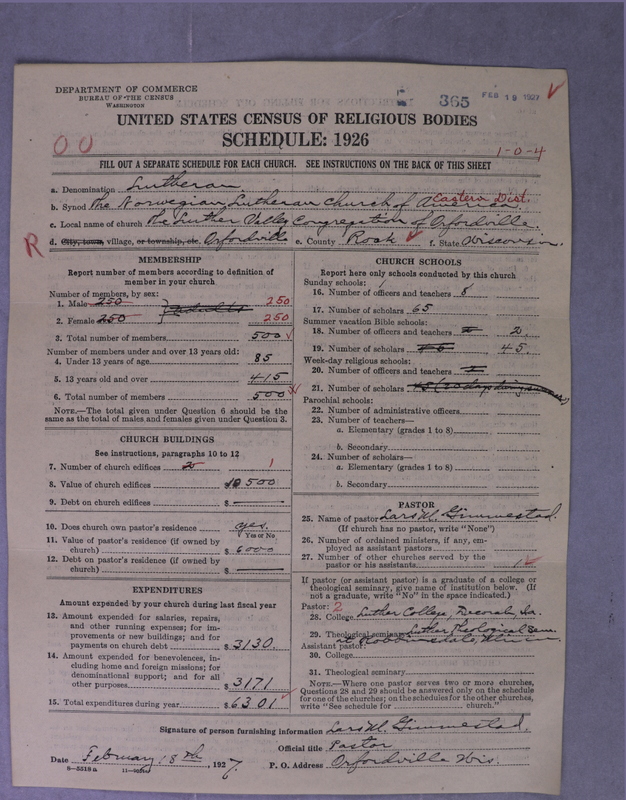 DEPARTMENT OF COMMERCE
BUREAU OF THE CENSUS
WASHINGTON
365
FEB 19 1927
UNITED STATES CENSUS OF RELIGIOUS BODIES
SCHEDULE: 1926
00
1-0-4
FILL OUT A SEPARATE SCHEDULE FOR EACH CHURCH. SEE INSTRUCTIONS ON THE BACK OF THIS SHEET
a. Denomination Lutheran
b. Synod The Norwegian Lutheran Church of America. Eastern Dist.
c. Local name of church The Luther Valley Congregation of Orfordville.
R
d. City, town, village, or township, etc. Orfordville e. County Rock f. State Wisconsin.
MEMBERSHIP
Report number of members according to definition of
member in your church
Number of members, by sex:
1. Male 250 250
2. Female 250 250
3. Total number of members. 500
Number of members under and over 13 years old:
4. Under 13 years of age 85
5. 13 years old and over 415
6. Total number of members 500
NOTE.—The total given under Question 6 should be the
same as the total of males and females given under Question 3.
CHURCH BUILDINGS
See instructions, paragraphs 10 to 12
7. Number of church edifices 2 1
8. Value of church edifices 500
9. Debt on church edifices $
10. Does church own pastor's residence yes.
Yes or No
11. Value of pastor's residence (if owned by
church) $ 6000
12. Debt on pastor's residence (if owned by
church) $
EXPENDITURES
Amount expended by your church during last fiscal year
13. Amount expended for salaries, repairs,
and other running expenses; for im-
provements or new buildings; and for
payments on church debt $ 3130.
14. Amount expended for benevolences, in-
cluding home and foreign missions; for
denominational support; and for all
other purposes $ 3171
15. Total expenditures during year $ 6301
CHURCH SCHOOLS
Report here only schools conducted by this church
Sunday schools:
16. Number of officers and teachers 8
17. Number of scholars 65
Summer vacation Bible schools:
18. Number of officers and teachers 2
19. Number of scholars 45.
Week-day religious schools:
20. Number of officers and teachers
21. Number of scholars
Parochial schools:
22. Number of administrative officers
23. Number of teachers—
a. Elementary (grades 1 to 8)
b. Secondary
24. Number of scholars—
a. Elementary (grades 1 to 8)
b. Secondary
PASTOR
25. Name of pastor Lars M. Gimmestad.
(If church has no pastor, write "None")
26. Number of ordained ministers, if any, em-
ployed as assistant pastors
27. Number of other churches served by the
pastor or his assistants 1
If pastor (or assistant pastor) is a graduate of a college or
theological seminary, give name of institution below. (If
not a graduate, write "No" in the space indicated.)
Pastor: 2
28. College Luther College, Decorah, Ia.
29. Theological seminary Luther Theological Sem.
at Robbinsdale, Minn.
Assistant pastor:
30. College
31. Theological seminary
NOTE.—Where one pastor serves two or more churches,
Questions 28 and 29 should be answered only on the schedule
for one of the churches; on the schedules for the other churches,
write "See schedule for church."
Signature of person furnishing information Lars M. Gimmestad.
Official title Pastor
Date February 18th, 1927. P. O. Address Orfordville Wis.
8—5218a